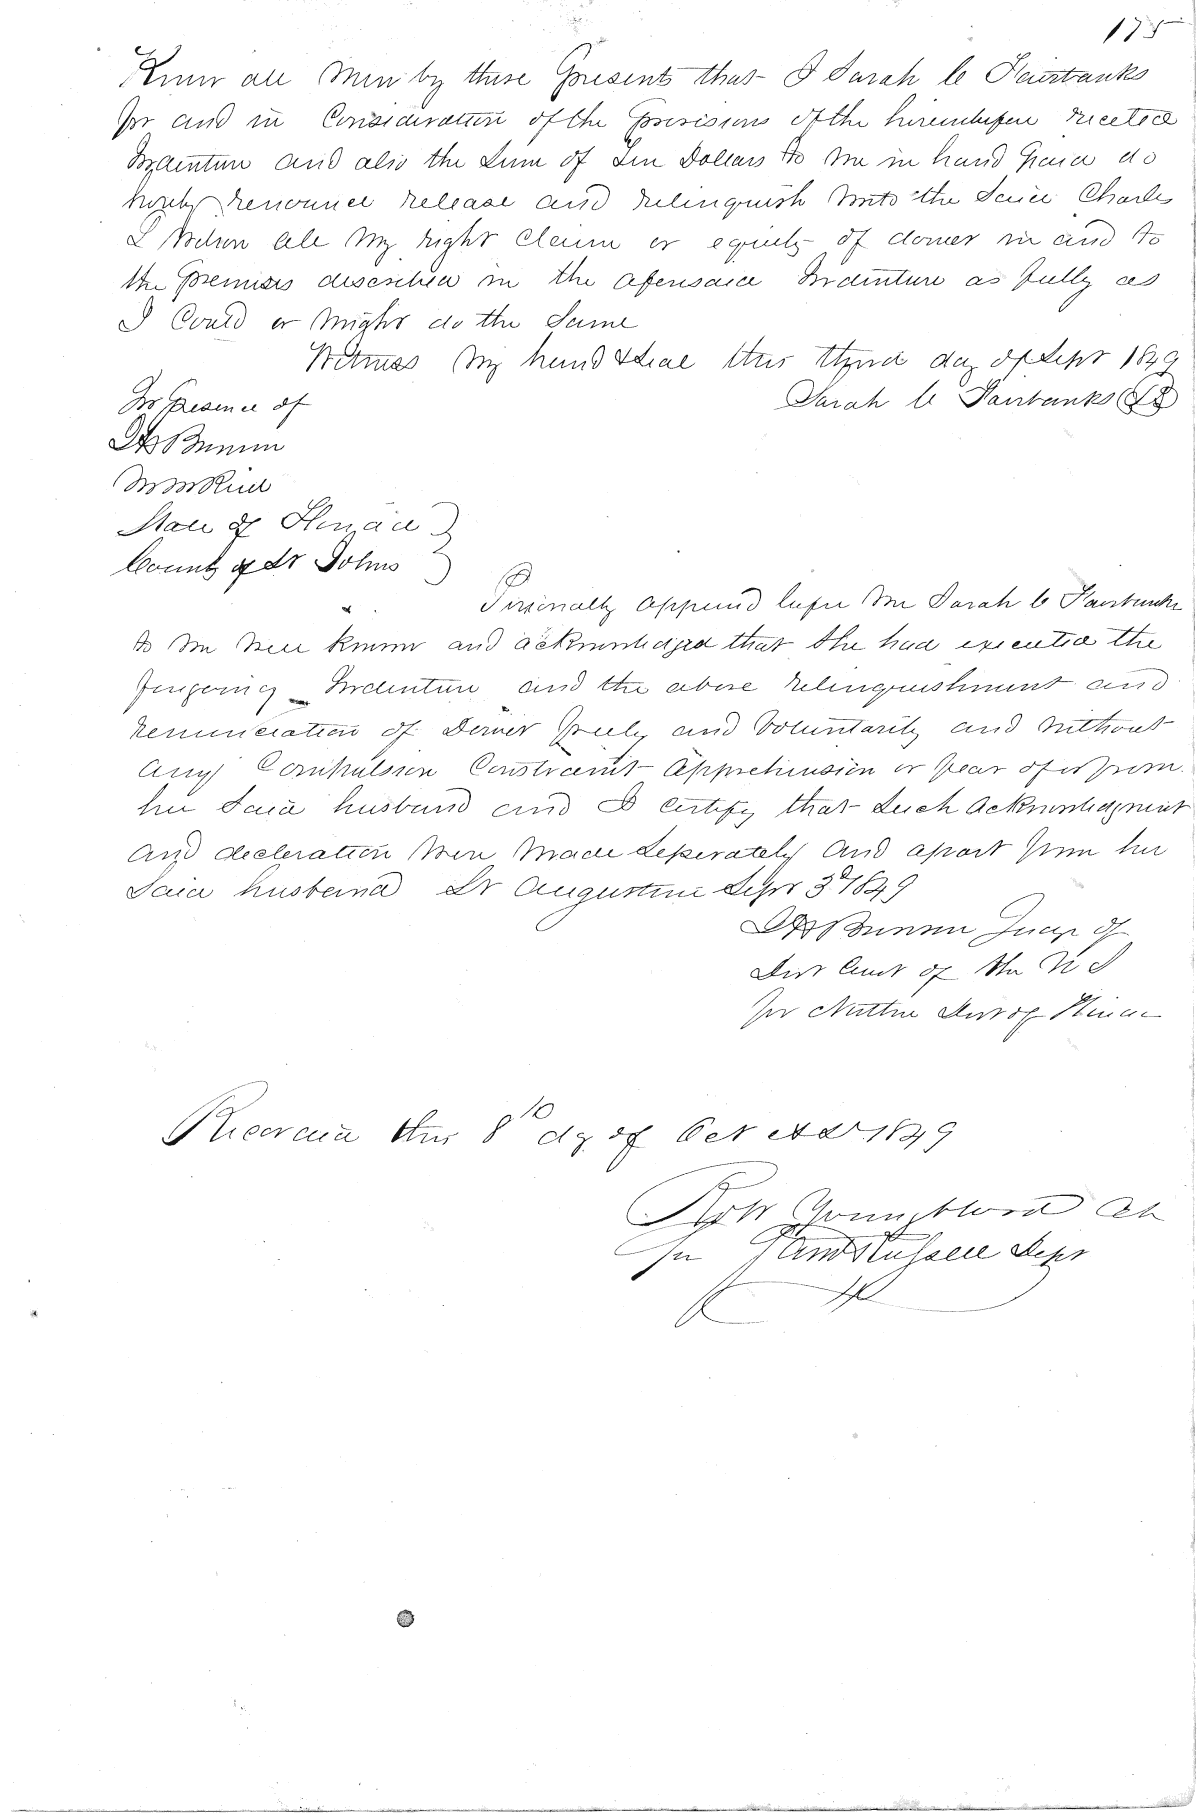 175
Know all Men by these Presents that I Sarah C Fairbanks
for and in Consideration of the Provisions of the hereinbefore recited
Indenture and also the Sum of Ten Dollars to me in hand Paid do
hereby renounce release and relinquish unto the Said Charles
L Wilson all My right Claim or equity of dower in and to
the Premises described in the aforesaid Indenture as fully as
I Could or Might do the Same
Witness My hand & Seal this third day of Sept 1849
In Presence of
Sarah C Fairbanks LS
IH Bronson
State of Florida
County of St Johns
Personally appeared before Me Sarah C Fairbanks
to Me Well Known and acknowledged that She had executed the
foregoing Indenture and the above relinquishment and
renunciation of Dower freely and Voluntarily and without
any Compulsion Constraint apprehension or fear of or from
her Said husband and I Certify that Such acknowledgment
and decleration Were Made Seperately and apart from her
Said husband St Augustine Sept 3d 1849
IH Bronson Judge of
Dist Court of the U S
for Northn Dist of Florida
Recorded this 8th dy of Oct AD 1849
Youngblood Clk
Dept